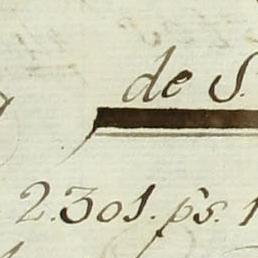 de S.
2.301. p.s 1